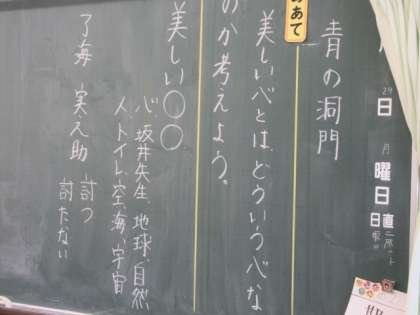 29
日
月
曜日
日直
青の洞門
めあて
美しい心とは、どういう心な
のか考えよう。
美しい○○
心、坂井先生、地球、自然
人、トイレ、空、海、宇宙
了海 実之助 討つ
討たない